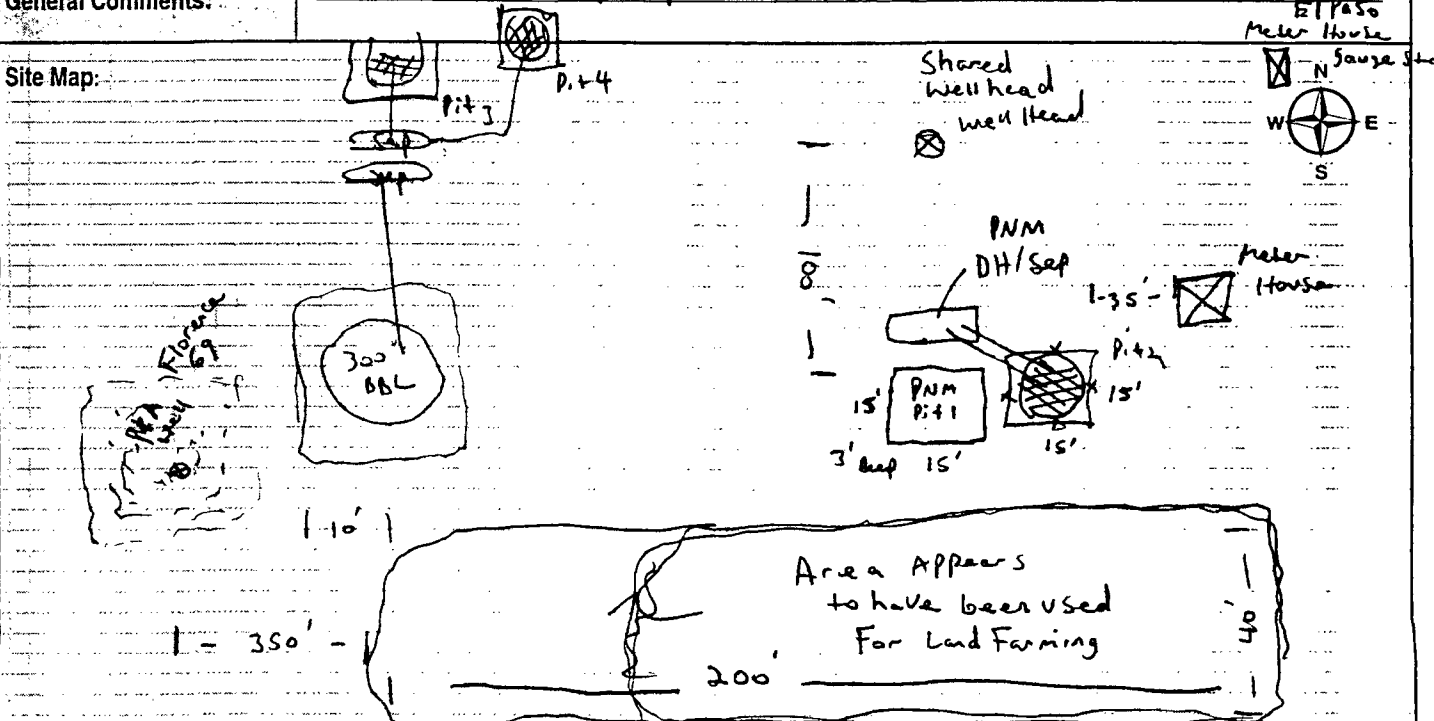 General Comments:
El Paso
Meter House
Site Map:
Pit 4
Pit 3
Sep
Sep
Shared
Wellhead
Well Head
N
W
E
S
PNM
DH/Sep
Meter
House
1-35'-
Pit 2
15'
15'
PNM
Pit 1
15'
3' deep 15'
300
BBL
Florence
69
P&A
Well
1-10' 1
Area Appears
to have been used
For Land Farming
1 - 350' - 1
200'
40'